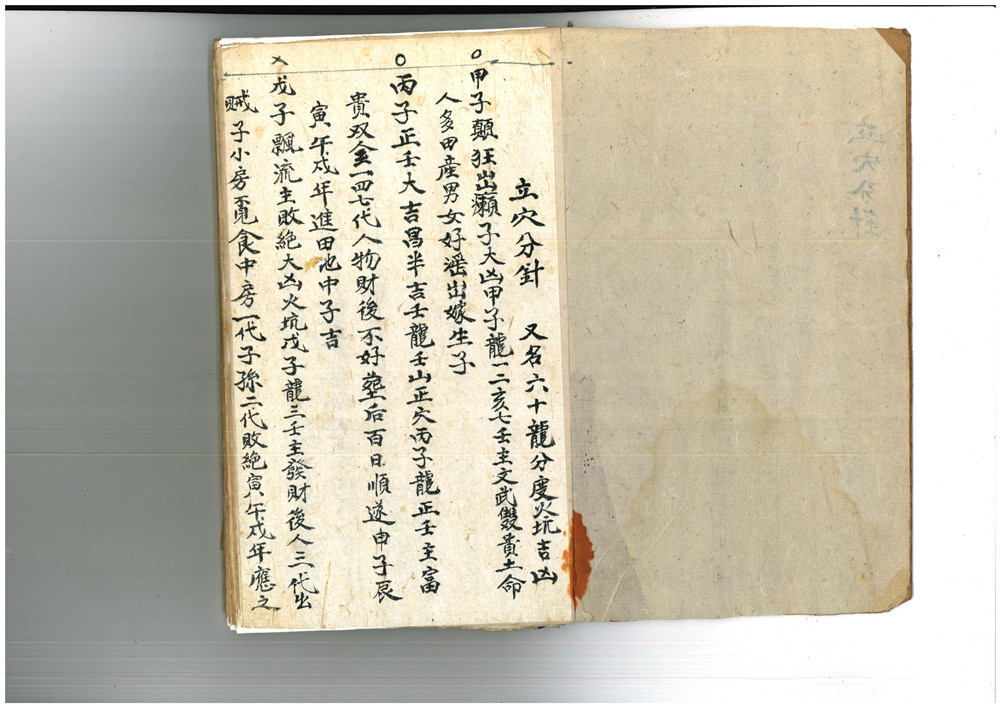 立穴分針　又名六十龍分度火坑吉凶
甲子顛狂出癩子大凶甲子龍一二亥七壬主文武雙貴土命
人多田産男女好淫出嫁生子
丙子正壬大吉昌半吉壬龍壬山正穴丙子龍正壬主富
貴双全一四七代人物財後不好塟后百日順遂申子辰
寅午戌年進田地中子吉
戊子飄流主敗絶大凶火坑戊子龍三壬主發財後人三代出
賊子小房覔食中房一代子孫二代敗絶寅午戌年應之
立穴分針